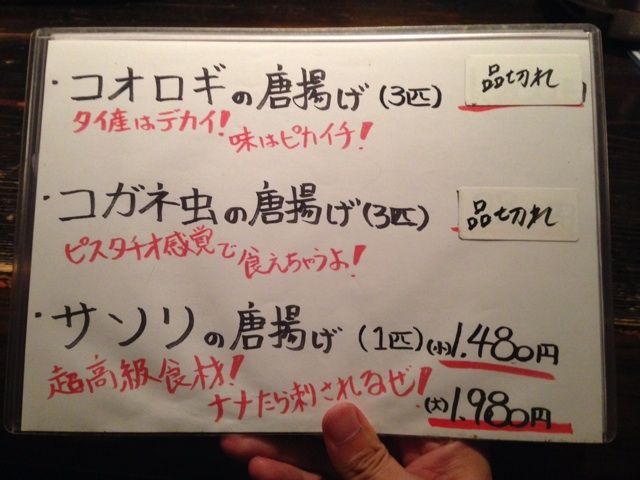 ・コオロギの唐揚げ(3匹) 品切れ
タイ産はデカイ!味はピカイチ!
・コガネ虫の唐揚げ(3匹) 品切れ
ピスタチオ感覚で食えちゃうよ!
・サソリの唐揚げ(1匹)(小)1.480円
超高級食材!ナナたら刺されるぜ!(大)1.980円